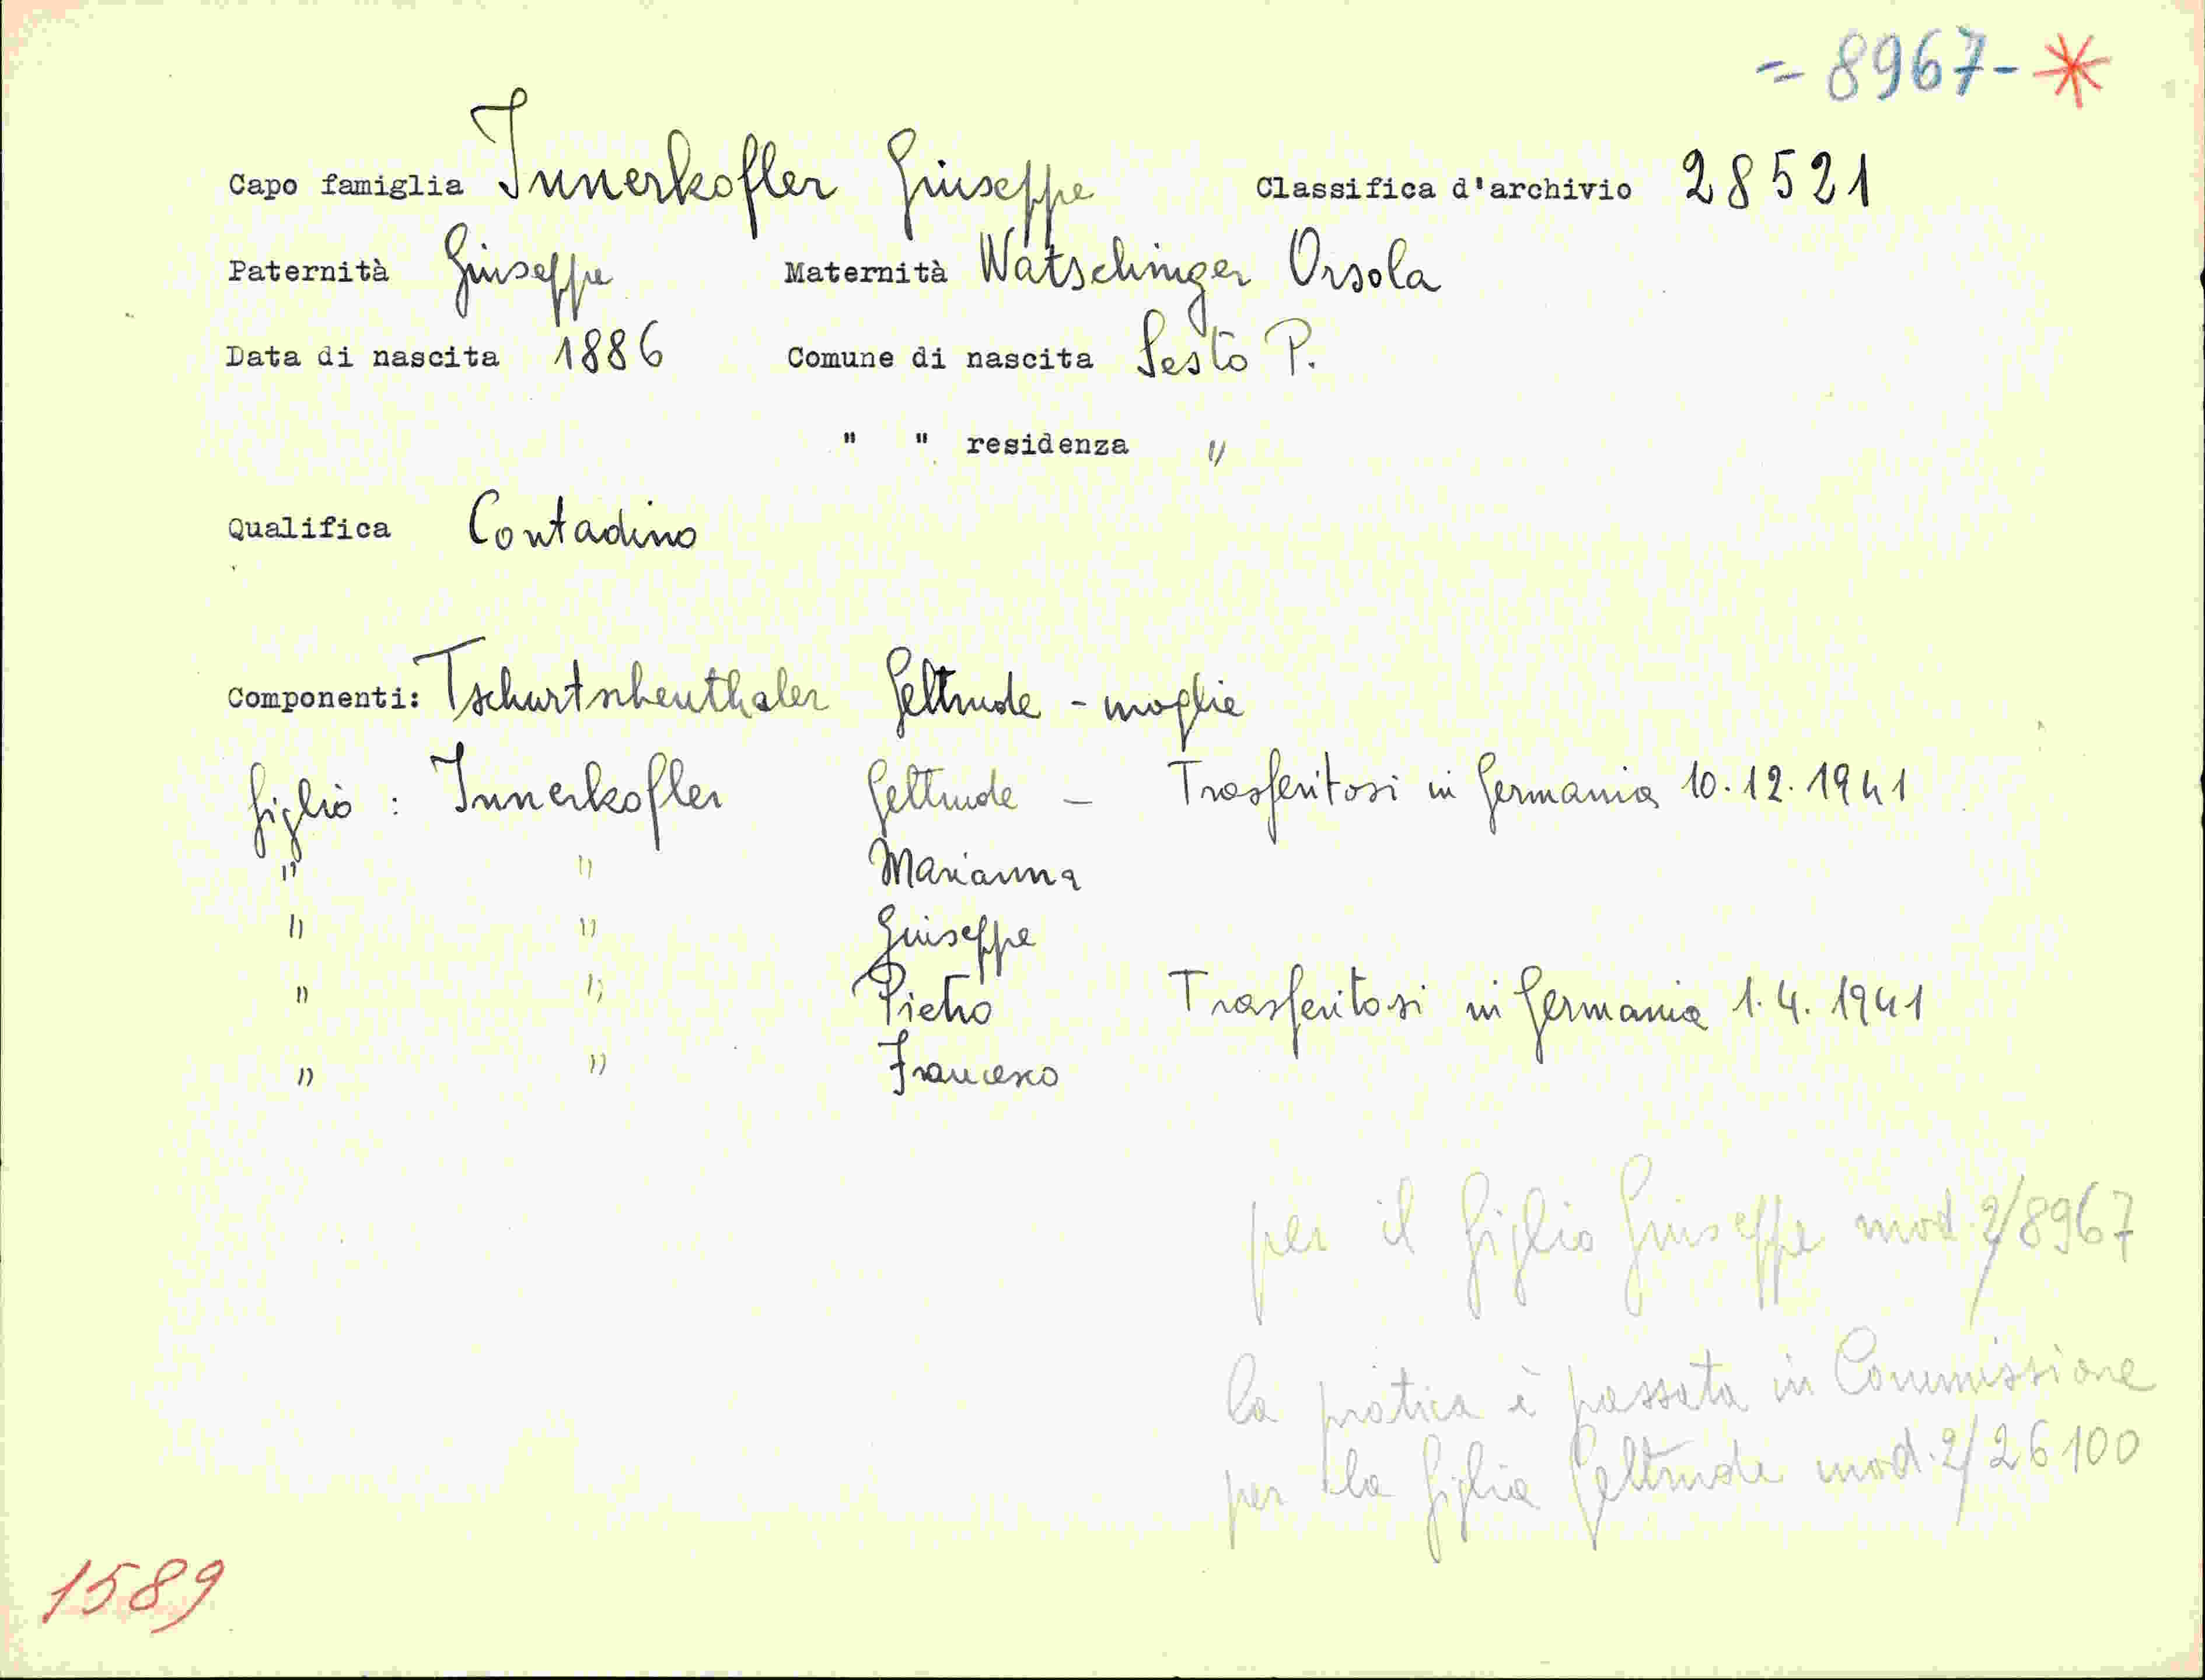 = 8967 - *
Capo famiglia Innerkofler Giuseppe Classifica d'archivio 28521
Paternità Giuseppe Maternità Watschinger Orsola
Data di nascita 1886 Comune di nascita Sesto P.
" " residenza "
Qualifica Contadino
Componenti: Tschurtschenthaler Geltrude - moglie
figlio : Innerkofler Geltrude - Trasferitosi in Germania 10.12.1941
" " Marianna
" " Giuseppe
" " Pietro Trasferitosi in Germania 1.4.1941
" " Francesco
per il figlio Giuseppe mod. 2/8967
la pratica è passata in Commissione
per la figlia Geltrude mod. 2/26100
1589